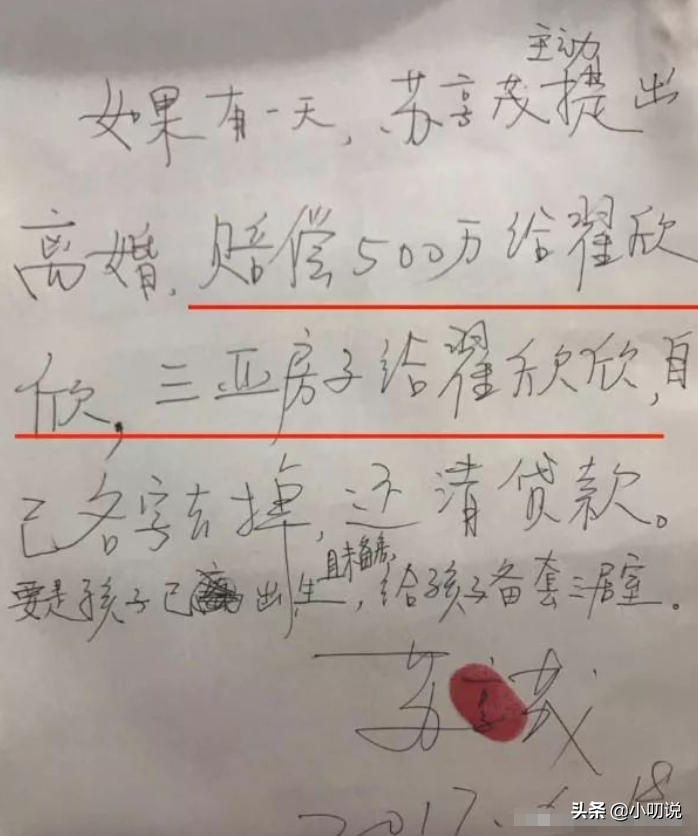 主动
如果有一天，苏享茂提出
离婚，赔偿500万给翟欣
欣，三亚房子给翟欣欣，自
己名字去掉，还清贷款。
且未备房
要是孩子已出生，给孩子备套三居室。
苏享茂
2017.
18
头条 @小叨说